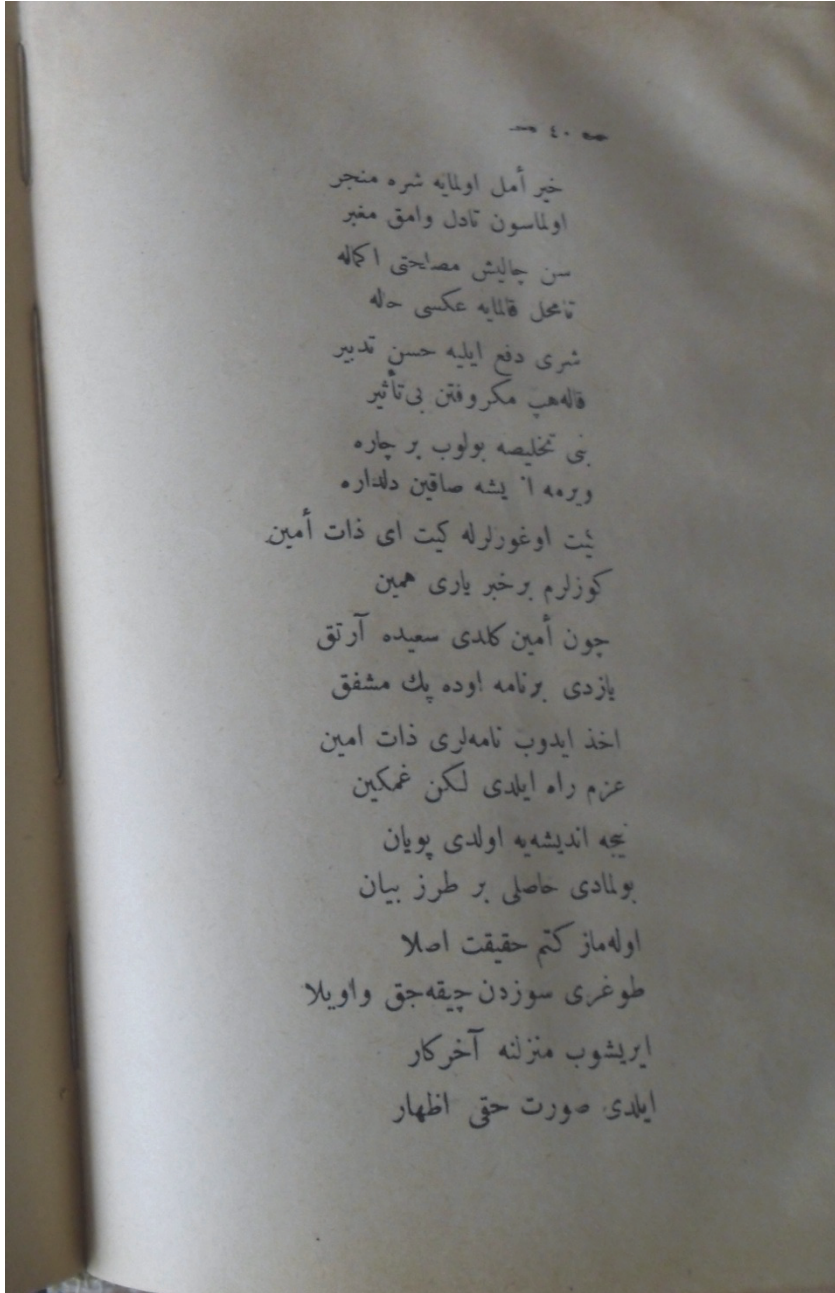 ٤٠
خیر أمل اولمایه شره منجر
اولماسون تادل وامق مغبر
سن چالیش مصلحتی اکماله
تامحل قالمایه عکسی حاله
شری دفع ایلیه حسن تدبیر
قاله‌هپ مکروفتن بی‌تأثیر
بنی تخلیصه بولوب بر چاره
ویرمه اندیشه صاقین دلداره
کیت اوغورلرله کیت ای ذات أمین
کوزلرم برخبر یاری همین
چون أمین کلدی سعیده آرتق
یازدی برنامه اوده پك مشفق
اخذ ایدوب نامه‌لری ذات امین
عزم راه ایلدی لکن غمکین
نیجه اندیشه‌یه اولدی پویان
بولمادی حاصلی بر طرز بیان
اوله‌ماز کتم حقیقت اصلا
طوغری سوزدن چیقه‌جق واویلا
ایریشوب منزلنه آخرکار
ایلدی صورت حقی اظهار